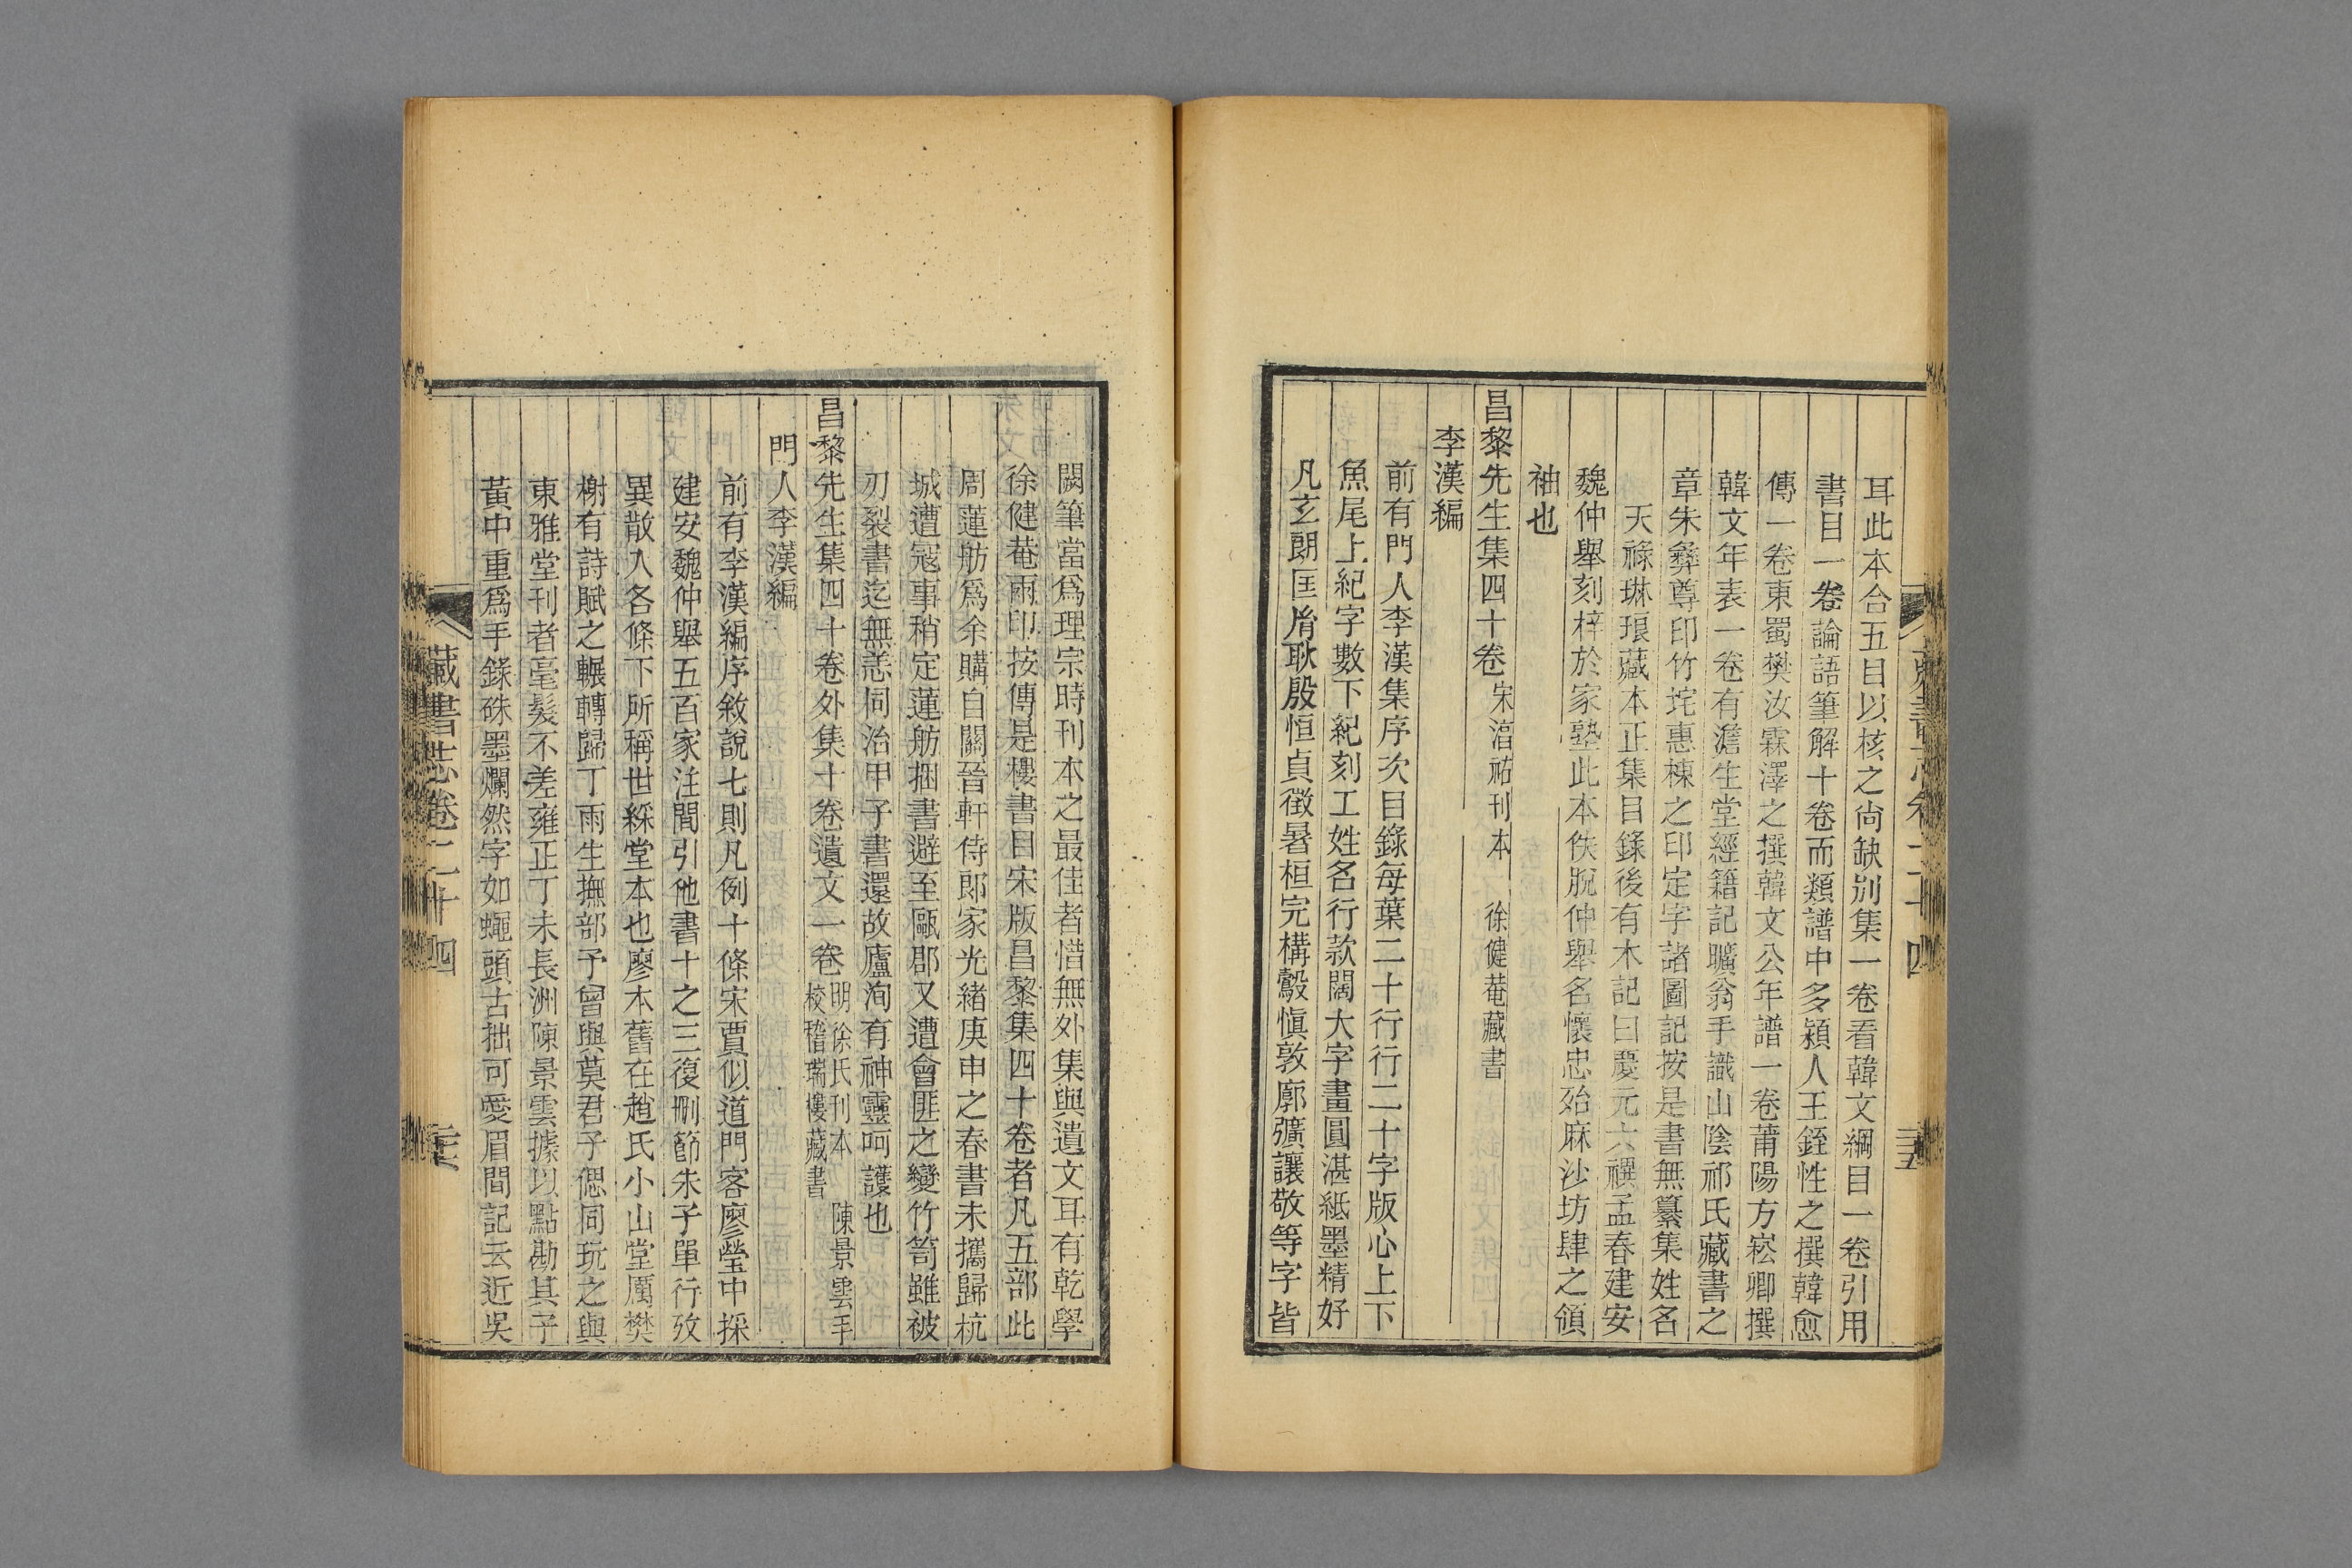 耳此本合五目以核之尙缺別集一卷看韓文綱目一卷引用
書目一卷論語筆解十卷而類譜中多潁人王銍性之撰韓愈
傳一卷東蜀樊汝霖澤之撰韓文公年譜一卷莆陽方崧卿撰
韓文年表一卷有澹生堂經籍記曠翁手識山陰祁氏藏書之
章朱彝尊印竹垞惠棟之印定宇諸圖記按是書無纂集姓名
天祿琳琅藏本正集目錄後有木記曰慶元六禩孟春建安
魏仲舉刻梓於家塾此本佚脫仲舉名懷忠殆麻沙坊肆之領
袖也
昌黎先生集四十卷 宋湻祐刊本 徐健菴藏書
李漢編
前有門人李漢集序次目錄每葉二十行行二十字版心上下
魚尾上紀字數下紀刻工姓名行款闊大字畫圓湛紙墨精好
凡玄朗匡胤耿殷恒貞徵暑桓完構㝅愼敦廓彍讓敬等字皆
藏書志卷二十四
闕筆當爲理宗時刊本之最佳者惜無外集與遺文耳有乾學
徐健菴兩印按傳是樓書目宋版昌黎集四十卷者凡五部此
周蓮舫爲余購自關晉軒侍郎家光緒庚申之春書未攜歸杭
城遭寇事稍定蓮舫捆書避至甌郡又遭會匪之變竹笥雖被
刃裂書迄無恙同治甲子書還故廬洵有神靈呵護也
昌黎先生集四十卷外集十卷遺文一卷 明徐氏刊本 陳景雲手
校 稽瑞樓藏書
門人李漢編
前有李漢編序敘說七則凡例十條宋賈似道門客廖瑩中採
建安魏仲舉五百家注間引他書十之三復刪節朱子單行攷
異散入各條下所稱世綵堂本也廖本舊在趙氏小山堂厲樊
榭有詩賦之輾轉歸丁雨生撫部予曾與莫君子偲同玩之與
東雅堂刊者毫髮不差雍正丁未長洲陳景雲據以點勘其子
黃中重爲手錄硃墨爛然字如蠅頭古拙可愛眉間記云近吳
藏書志卷二十四